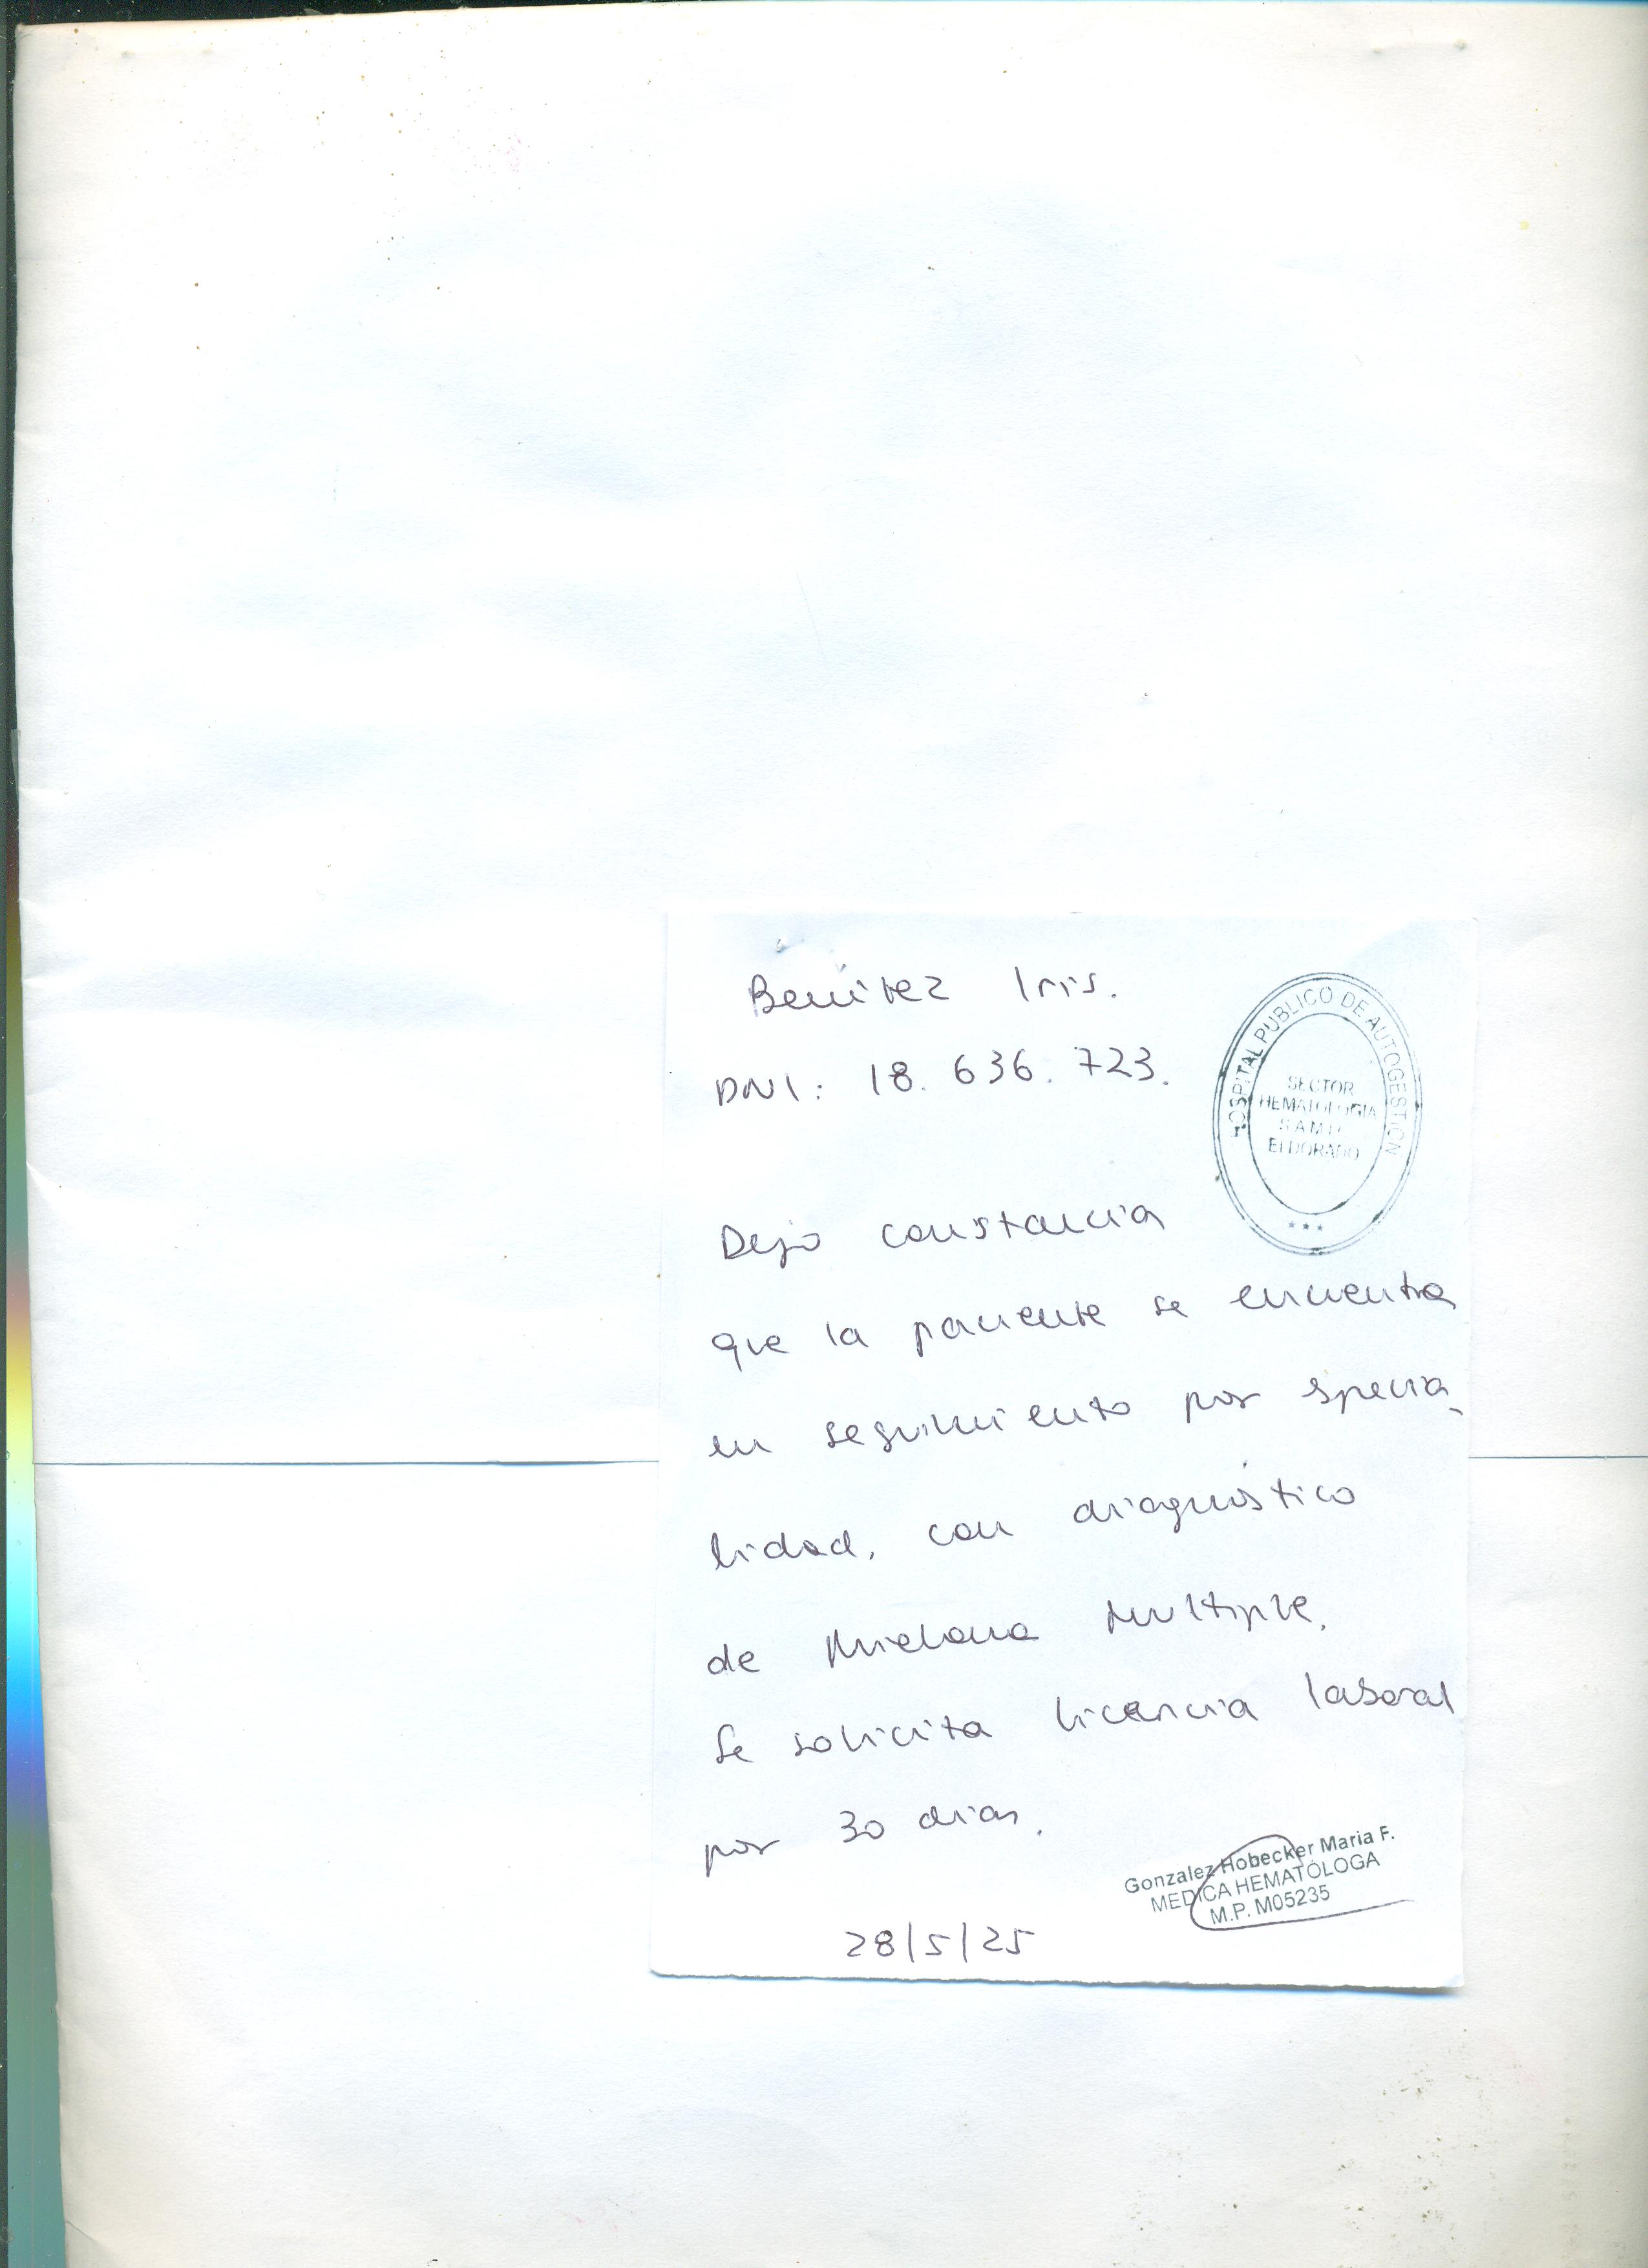 Benítez Iris.
DNI: 18.636.723.
HOSPITAL PUBLICO DE AUTOGESTION
SECTOR
HEMATOLOGIA
SAMIC
ELDORADO
Dejo constancia
que la paciente se encuentra
en seguimiento por especia-
lidad, con diagnóstico
de Mieloma Multiple.
Se solicita licencia laboral
por 30 dias.
Gonzalez Hobecker Maria F.
MEDICA HEMATÓLOGA
M.P. M05235
28/5/25